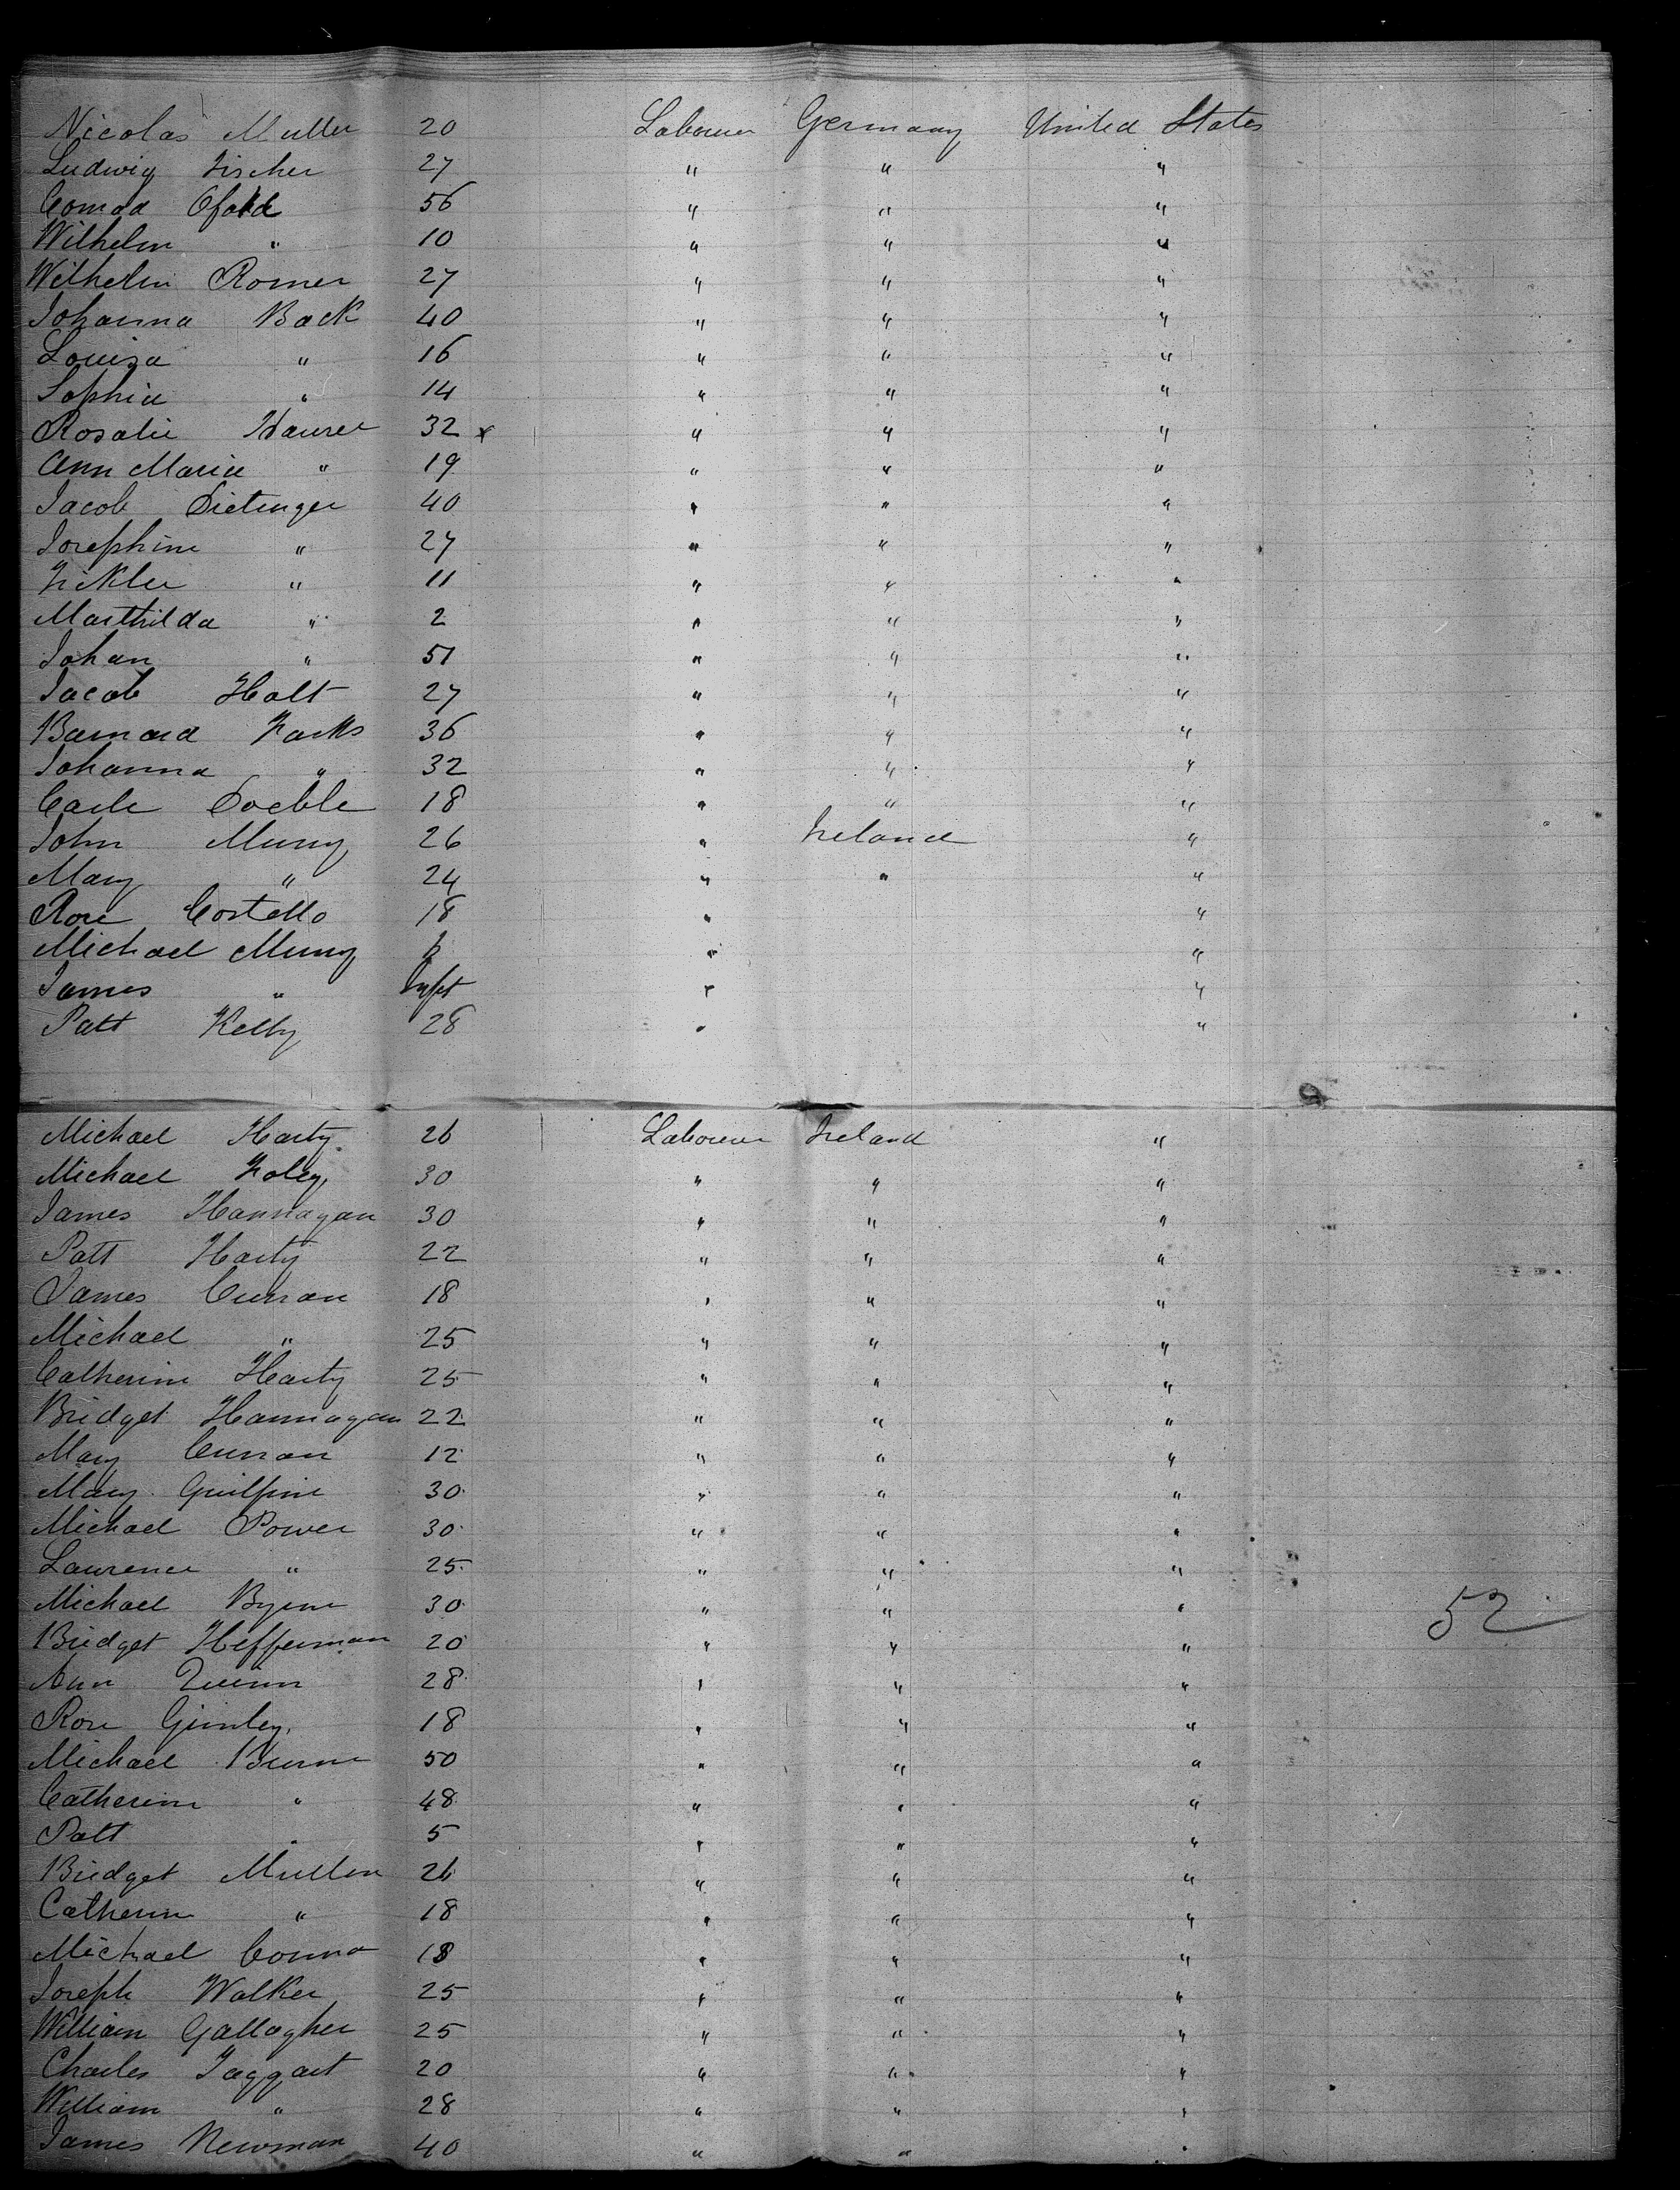 Nicolas Muller 20 Labourer Germany United States
Ludwig Fischer 27 " " "
Conrad Ofald 56 " " "
Wilhelm " 10 " " "
Wilhelm Romer 27 " " "
Johanna Back 40 " " "
Louiza " 16 " " "
Sophia " 14 " " "
Rosalie Haurer 32 x " " "
Ann Maria " 19 " " "
Jacob Dietinger 40 " " "
Josephine " 27 " " "
" 11 " " "
Marthilda " 2 " " "
Johan " 51 " " "
Jacob Holt 27 " " "
Barnard Farks 36 " " "
Johanna " 32 " " "
Carle Doeble 18 " " "
John Murry 26 " Ireland "
Mary " 24 " " "
Rose Costello 18 " "
Michael Murry " "
James " Inft " "
Patt Kelly 28 " "
Michael Harty 26 Labourer Ireland "
Michael Foley 30 " " "
James Hannagan 30 " " "
Patt Harty 22 " " "
James Curran 18 " " "
Michael " 25 " " "
Catherine Harty 25 " " "
Bridget Hannagan 22 " " "
Mary Curran 12 " " "
Mary Guilfine 30 " " "
Michael Power 30 " " "
Laurence " 25 " " "
Michael Byrne 30 " " "
52
Bridget Heffernan 20 " " "
Ann Quinn 28 " " "
Rose Gimley 18 " " "
Michael Burne 50 " " "
Catherine " 48 " " "
Patt " 5 " " "
Bridget Mullen 26 " " "
Catherin " 18 " " "
Michael Conna 18 " " "
Joseph Walker 25 " " "
William Gallagher 25 " " "
Charles Taggart 20 " " "
William " 28 " " "
James Newman 40 " " "